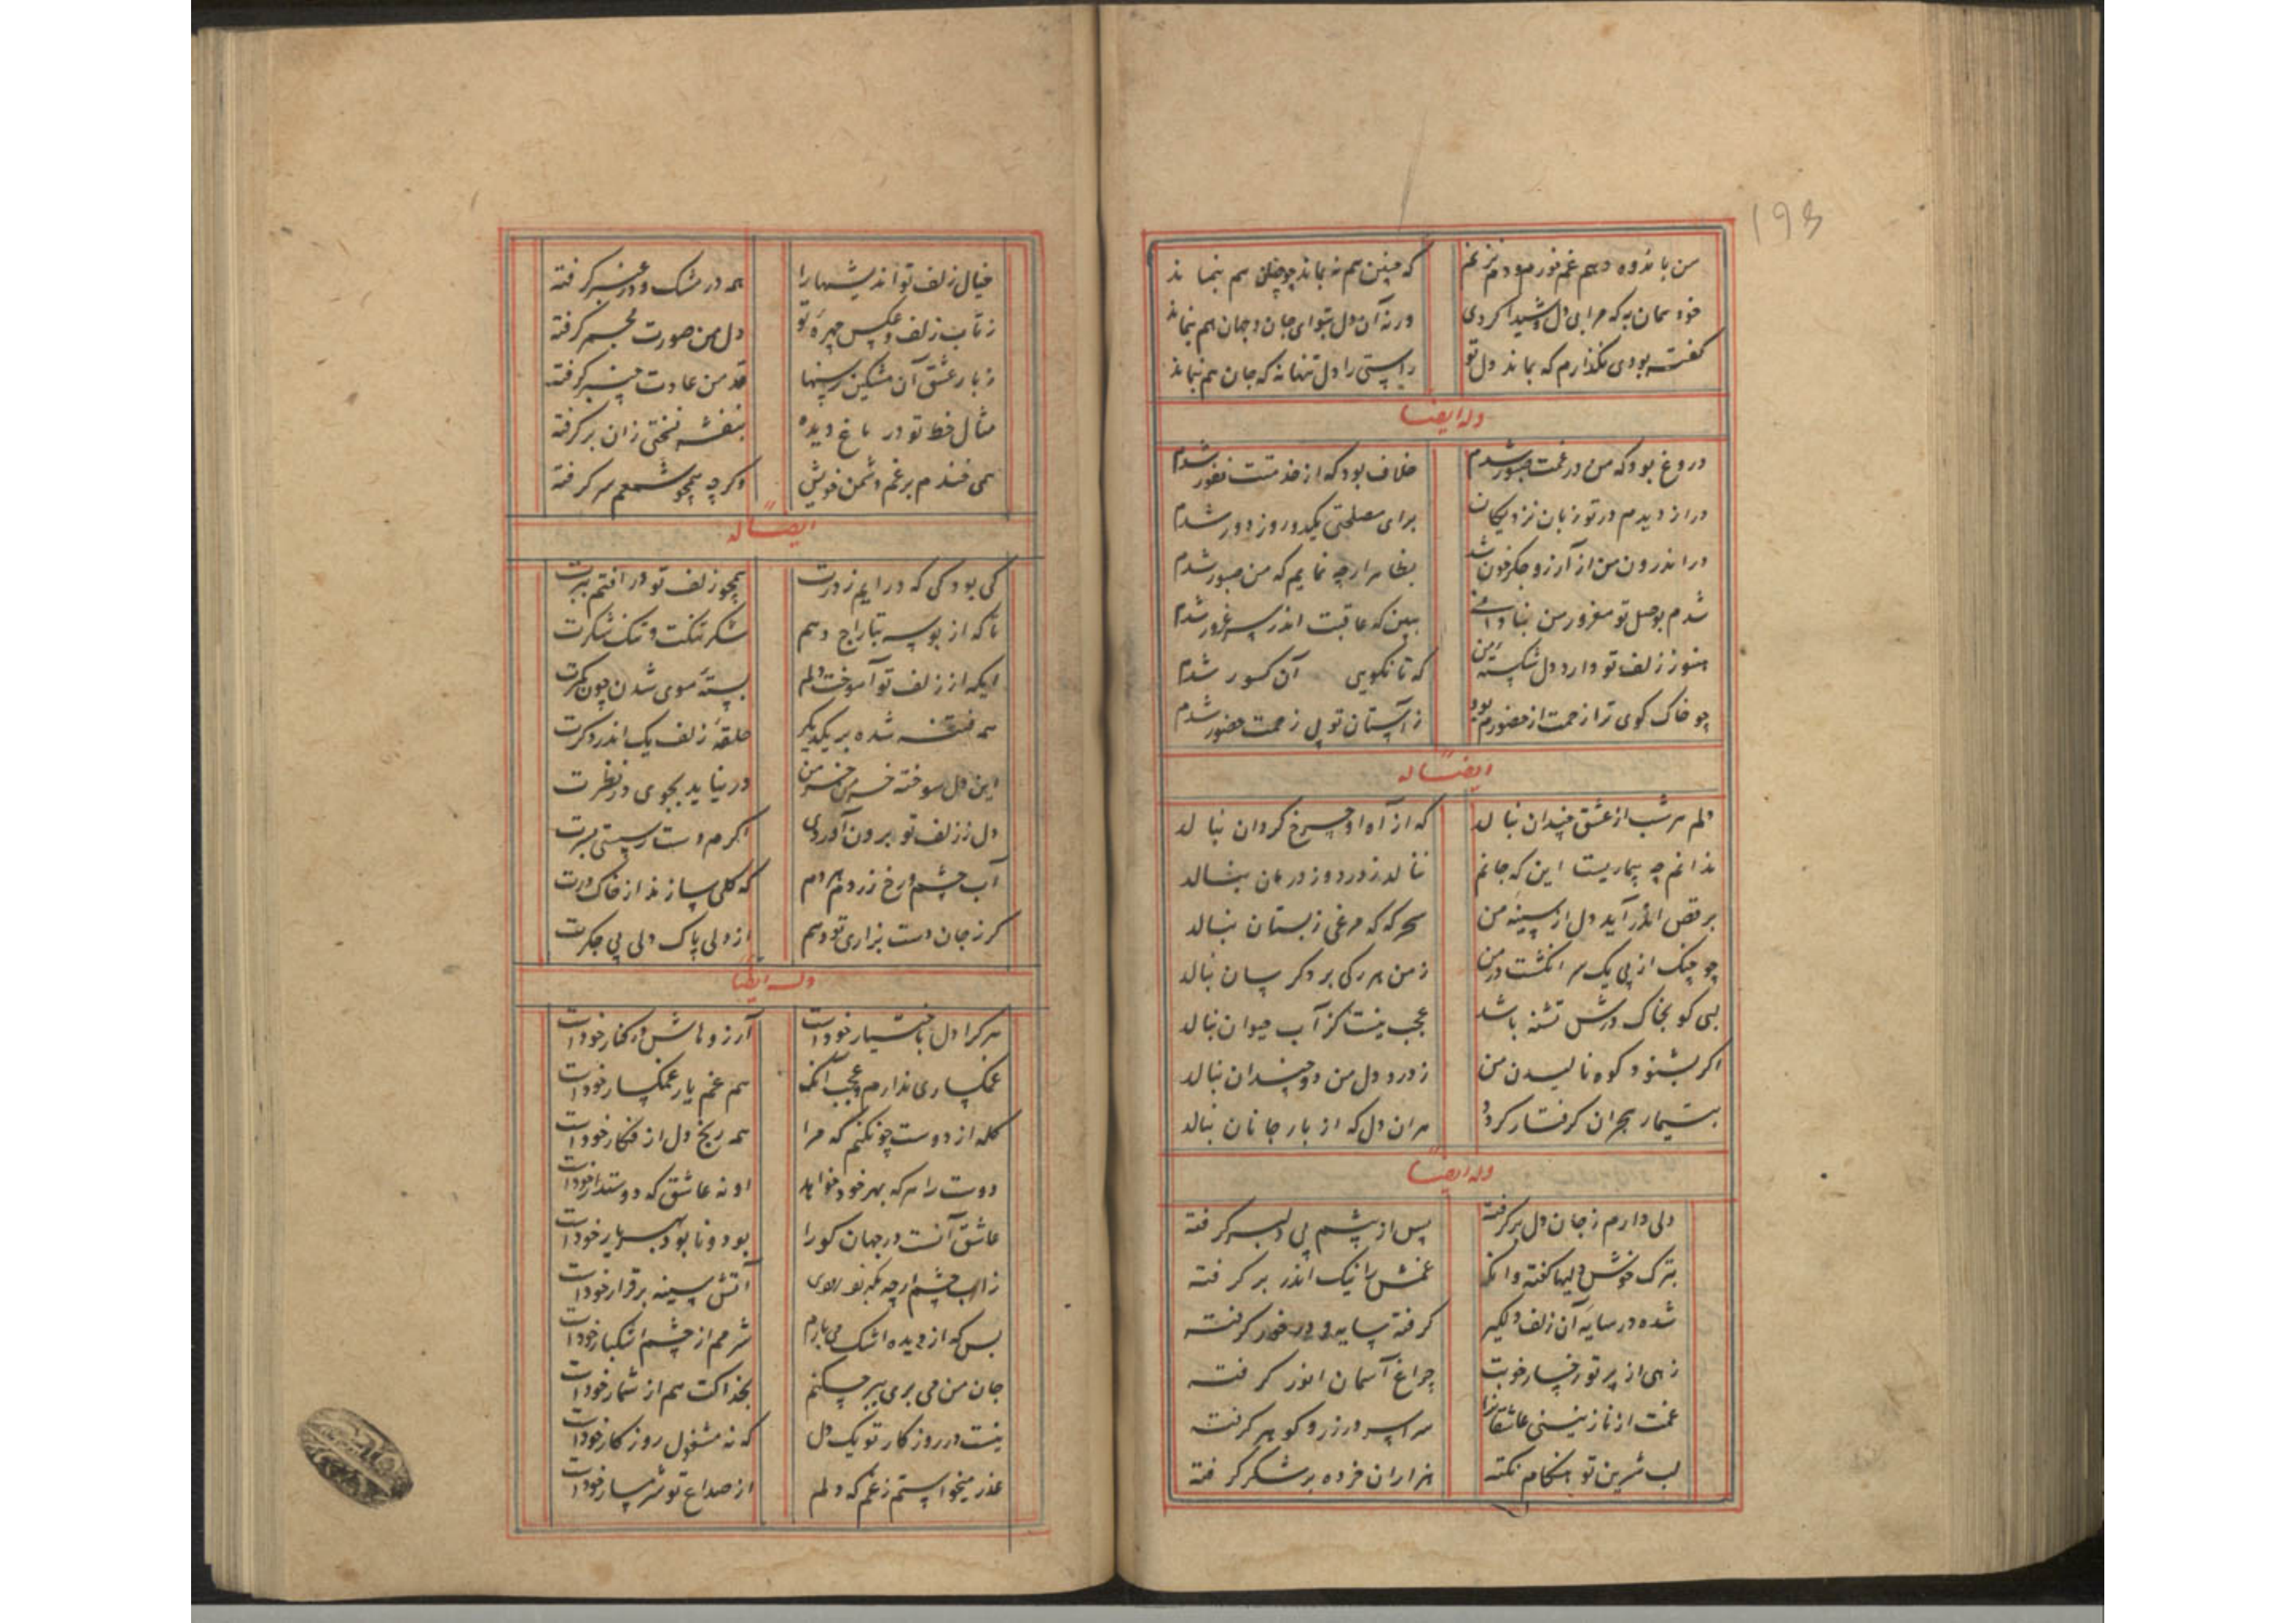 193
من باندوه دهم غم خورم ودم نزنم
که چنین هم نه بماند چو چنان هم بنماند
خود همان به که مرا بی دل و شیدا کردی
ورنه آن دل بتو ای جان و جهان هم بنماند
گفته بودی نگذارم که بماند دل تو
راستی را دل تنها نه که جان هم نماند
وله ایضا
دروغ بود که من در غمت صبور شدم
خلاف بود که از خدمتت نفور شدم
دراز دیدم در تو زبان نزدیکان
برای مصلحتی یکدو روز دور شدم
در اندرون من از آرزو جگر خون شد
بظاهر ارچه نمایم که من صبور شدم
شدم بوصل تو مغرور من بنادانی
ببین که عاقبت اندر سر غرور شدم
هنوز زلف تو دارد دل شکسته من
که تا نگویی آن کسور شدم
چو خاک کوی ترا زحمت از حضورم بود
ز آستان تو بی زحمت حضور شدم
ایضا له
دلم هر شب از عشق چندان بنالد
که از آه او چرخ گردان بنالد
ندانم چه بیماریست این که جانم
ننالد ز درد و ز درمان بنالد
برقص اندر آید دل از سینه من
سحرگه که مرغی ز بستان بنالد
چو چنگ از پی یک سر انگشت در من
ز من هر رگی بر دگر سان بنالد
بسی کو بخاک درش تشنه باشد
عجب نیست کز آب حیوان بنالد
اگر بشنود کوه نالیدن من
ز درد دل من دو چندان بنالد
بتیمار هجران گرفتار گردد
هر ان دل که از بار جانان بنالد
وله ایضا
دلی دارم ز جان دل برگرفته
پس از پشم پی دلبر گرفته
بترک خوش دلیها گفته وانگه
غمش را نیک اندر بر گرفته
شده در سایه آن زلف دلگیر
گرفته سایه و در خور گرفته
زهی از پرتو رخسار خوبت
چراغ آسمان انور گرفته
غمت از نازنینی عاشقانرا
سراسر در زر و گوهر گرفته
لب شرین تو هنگام نکته
هزاران خرده بر شکر گرفته
خیال زلف تو اندیشهها را
همه در مشک و در عنبر گرفته
ز تاب زلف و عکس چهره تو
دل من صورت مجمر گرفته
ز بار عشق آن مشکین رسنها
قد من عادت چنبر گرفته
مثال خط تو در باغ دیده
بنفشه نسختی زان بر گرفته
همی خندم برغم دشمن خویش
وگرچه همچو شمعم سر گرفته
ایضا له
کی بود کی که در ایم ز درت
همچو زلف تو در افتم ببرت
تا که از بوسه بتاراج دهم
شکر تنگت و تنگ شکرت
ایکه از زلف تو آموخت دلم
بسته موی شدن چون کمرت
همه فتنه شده بر یکدیگر
حلقه زلف یک اندر دگرت
این دل سوخته خرمن من
در نیاید بجوی در نظرت
دل ز زلف تو برون آوردی
اگرم دست رسیستی بسرت
آب چشم و رخ زردم هر دم
که گلی سازند از خاک درت
گر ز جان دست بزاری تو دهم
از دلی پاک ولی بی جگرت
وله ایضا
هر کرا دل باختیار خودست
آرزوهاش در کنار خودست
غمگساری ندارم و عجب آنکه
هم غم یار غمگسار خودست
گله از دوست چو نکنم که مرا
همه رنج دل از فگار خودست
دوست را هر که بهر خود خواهد
او نه عاشق که دوستدار خودست
عاشق آنست در جهان کو را
بود و نابود بهر یار خودست
زآب چشم ارچه بگذرد روی
آتش سینه برقرار خودست
بس که از دیده اشک می بارم
شرمم از چشم اشکبار خودست
جان من می بری ببر چکنم
بخدا کت هم از شمار خودست
نیست در روزگار تو یک دل
که نه مشغول روزگار خودست
عذر میخواستم ز غم که دلم
از صداع تو شرمسار خودست